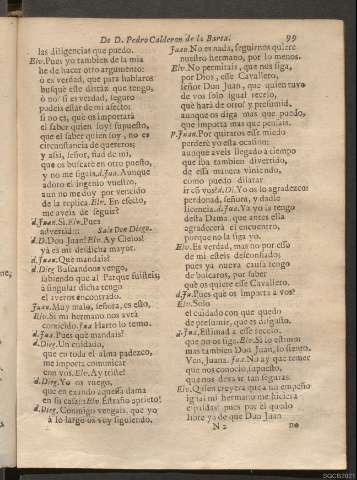 De D. Pedro Calderon de la Barca. 99
las diligencias que puedo.
Elv. Pues yo tambien de la mia
he de hacer otro argumento:
ò es verdad, que para hablaros
busquè este disfràz que tengo,
ò no? si es verdad, seguro
podeis estàr de mi afecto:
si no es, què os importarà
el saber quien soy? supuesto,
que el saber quien soy, no es
circunstancia de quereros;
y assi, señor, fiad de mi,
que os buscarè en otro puesto,
y no me sigais. d. Jua. Aunque
adoro el ingenio vuestro,
aun no me doy por vencido
de la replica. Elv. En efecto,
me aveis de seguir?
d. Jua. Si. Elv. Pues
advertid::: Sale Don Diego.
d. D. Don Juan? Elv. Ay Cielos!
yà es mi desdicha mayor.
d. Juan. Què mandais?
d. Dieg. Buscandoos vengo,
sabiendo que al Parque fuisteis;
à singular dicha tengo
el averos encontrado.
Juan. Muy malo, señora, es esto,
Elv. Si mi hermano nos avrà
conocido. Jua. Harto lo temo.
d. Jua. Pues què mandais?
d. Dieg. Un cuidado,
que en toda el alma padezco,
me importa comunicar
con vos. Elv. Ay triste!
d. Dieg. Yo os ruego,
que en exando aquessa dama
en su casa:: Elv. Estraño aprieto!
d. Dieg. Conmigo vengais, que yo
à lo largo os voy siguiendo.
Juan. No es nada, seguirnos quiere
nuestro hermano, por lo menos.
Elv. No permitais, que nos siga,
por Dios, esse Cavallero,
señor Don Juan, que quien tuvo
de vos solo igual recelo,
què harà de otro? y presumid,
aunque os diga mas que puedo,
que importa mas que pensais.
d. Juan. Por quitaros esse miedo
perderè yo esta ocasion:
aunque aveis llegado à tiempo
que iba tambien divertido,
de essa manera viniendo,
como puedo dilatar
ir con vos? d. Di. Yo os lo agradezco:
perdonad, señora, y dadle
licencia. d. Jua. Ya yo la tengo
desta Dama, que antes ella
agradecerà el encuentro,
porque no la siga yo.
Elv. Es verdad, mas no por esso
de mi esteis desconfiado;
pues yà nueva causa tengo
de buscaros, por saber
què os quiere esse Cavallero.
d. Jua. Pues què os importa à vos?
Elv. Solo
el cuidado con que quedo
de presumir, que es disgusto.
d. Jua. Estimad à esse rezelo,
que no os siga. Elv. Si lo estimo;
mas tambien Don Juan, lo siento.
Ven, Juana. Jua. No ay que temer
que nos conociò, supuesto,
que nos dexa ir tan seguras.
Elv. Quien creyera que à un empeño
igual mi hermano me hiciera
espaldas! pues por èl quedo
libre ya de que Don Juan
N 2 no
SGCB2021